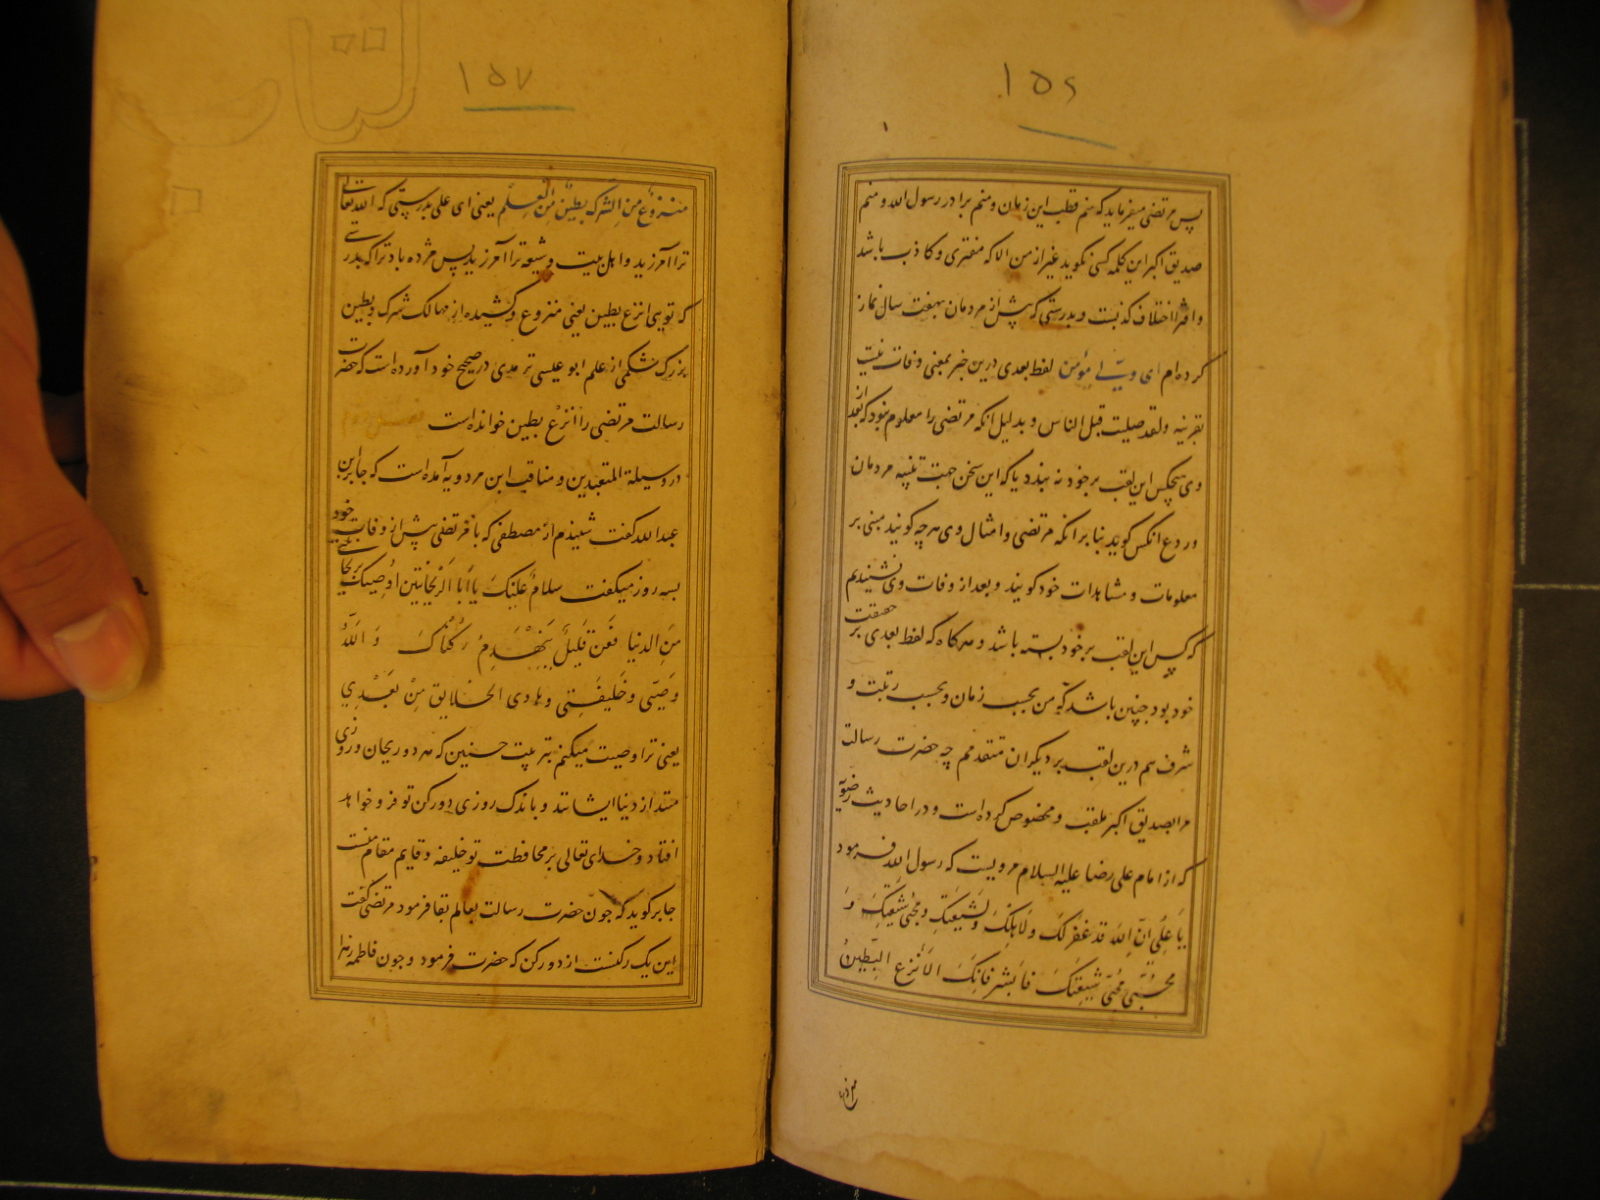 ۱۵۶
پس مرتضی میفرماید که منم قطب این زمان و منم برادر رسول الله و منم
صدیق اکبر این کلمه کسی نگوید غیر از من الا که مفتری و کاذب باشد
و افترا اختلاف کذبت و بدرستی که پیش از مردمان بهفت سال نماز
کرده‌ام ای ولی مؤمن لفظ بعدی درین خبر بمعنی وفات نیست
بقرینه ولقد صلیت قبل الناس و بدلیل انکه مرتضی را معلوم بود که بعد از
وی هیچکس این لقب بر خود نه بندد یا که این سخن جهت تنبیه مردمان
و ردع انکس کوید بنا بر انکه مرتضی و امثال وی هر چه کویند مبنی بر
معلومات و مشاهدات خود کویند و بعد از وفات وی نشنیدیم
که کس این لقب بر خود بسته باشد و هرکاه که لفظ بعدی بر حقیقت
خود بود چنین باشد که من بحسب زمان و بحسب رتبت و
شرف هم درین لقب بر دیکران متقدمم چه حضرت رسالت
مرا بصدیق اکبر ملقب و مخصوص کرده است و در احادیث رضویه
که از امام علی رضا علیه السلام مرویست که رسول الله فرمود
یا علی ان الله قد غفر لک ولاهلک ولشیعتک و محبی شیعتک و
محبی محبی شیعتک فابشر فانک الانزع البطین
۱۵۷
منزوع من الشرک بطین من العلم یعنی ای علی بدرستی که الله تعالی
ترا آمرزید و اهل بیت و شیعه ترا آمرزید پس مژده باد ترا که بدرستی
که تویی انزع بطین یعنی منزوع و کشیده از مهالک شرک و بطین
بزرک شکمی از علم ابو عیسی ترمدی در صحیح خود آورده است که حضرت
رسالت مرتضی را انزع بطین خوانده است
در وسیلة المتعبدین و مناقب ابن مردویه آمده است که جابر ابن
عبدالله کفت شنیدم از مصطفی که با مرتضی پیش از وفات خود
بسه روز میکفت سلام علیک یا ابا الریحانتین اوصیک بریحانتی
من الدنیا فعن قلیل ینهدم رکناک والله
وصیی و خلیفتی و هادی الخلایق من بعدی
یعنی ترا وصیت میکنم بتربیت حسنین که هر دو ریحان و روزی
منند از دنیا ایشانند و باندک روزی دو رکن تو فرو خواهد
افتاد و خدای تعالی بر محافظت تو خلیفه و قایم مقام منست
جابر کوید که چون حضرت رسالت بعالم بقا فرمود مرتضی کفت
این یک رکنست از دو رکن که حضرت فرمود و چون فاطمه زهرا